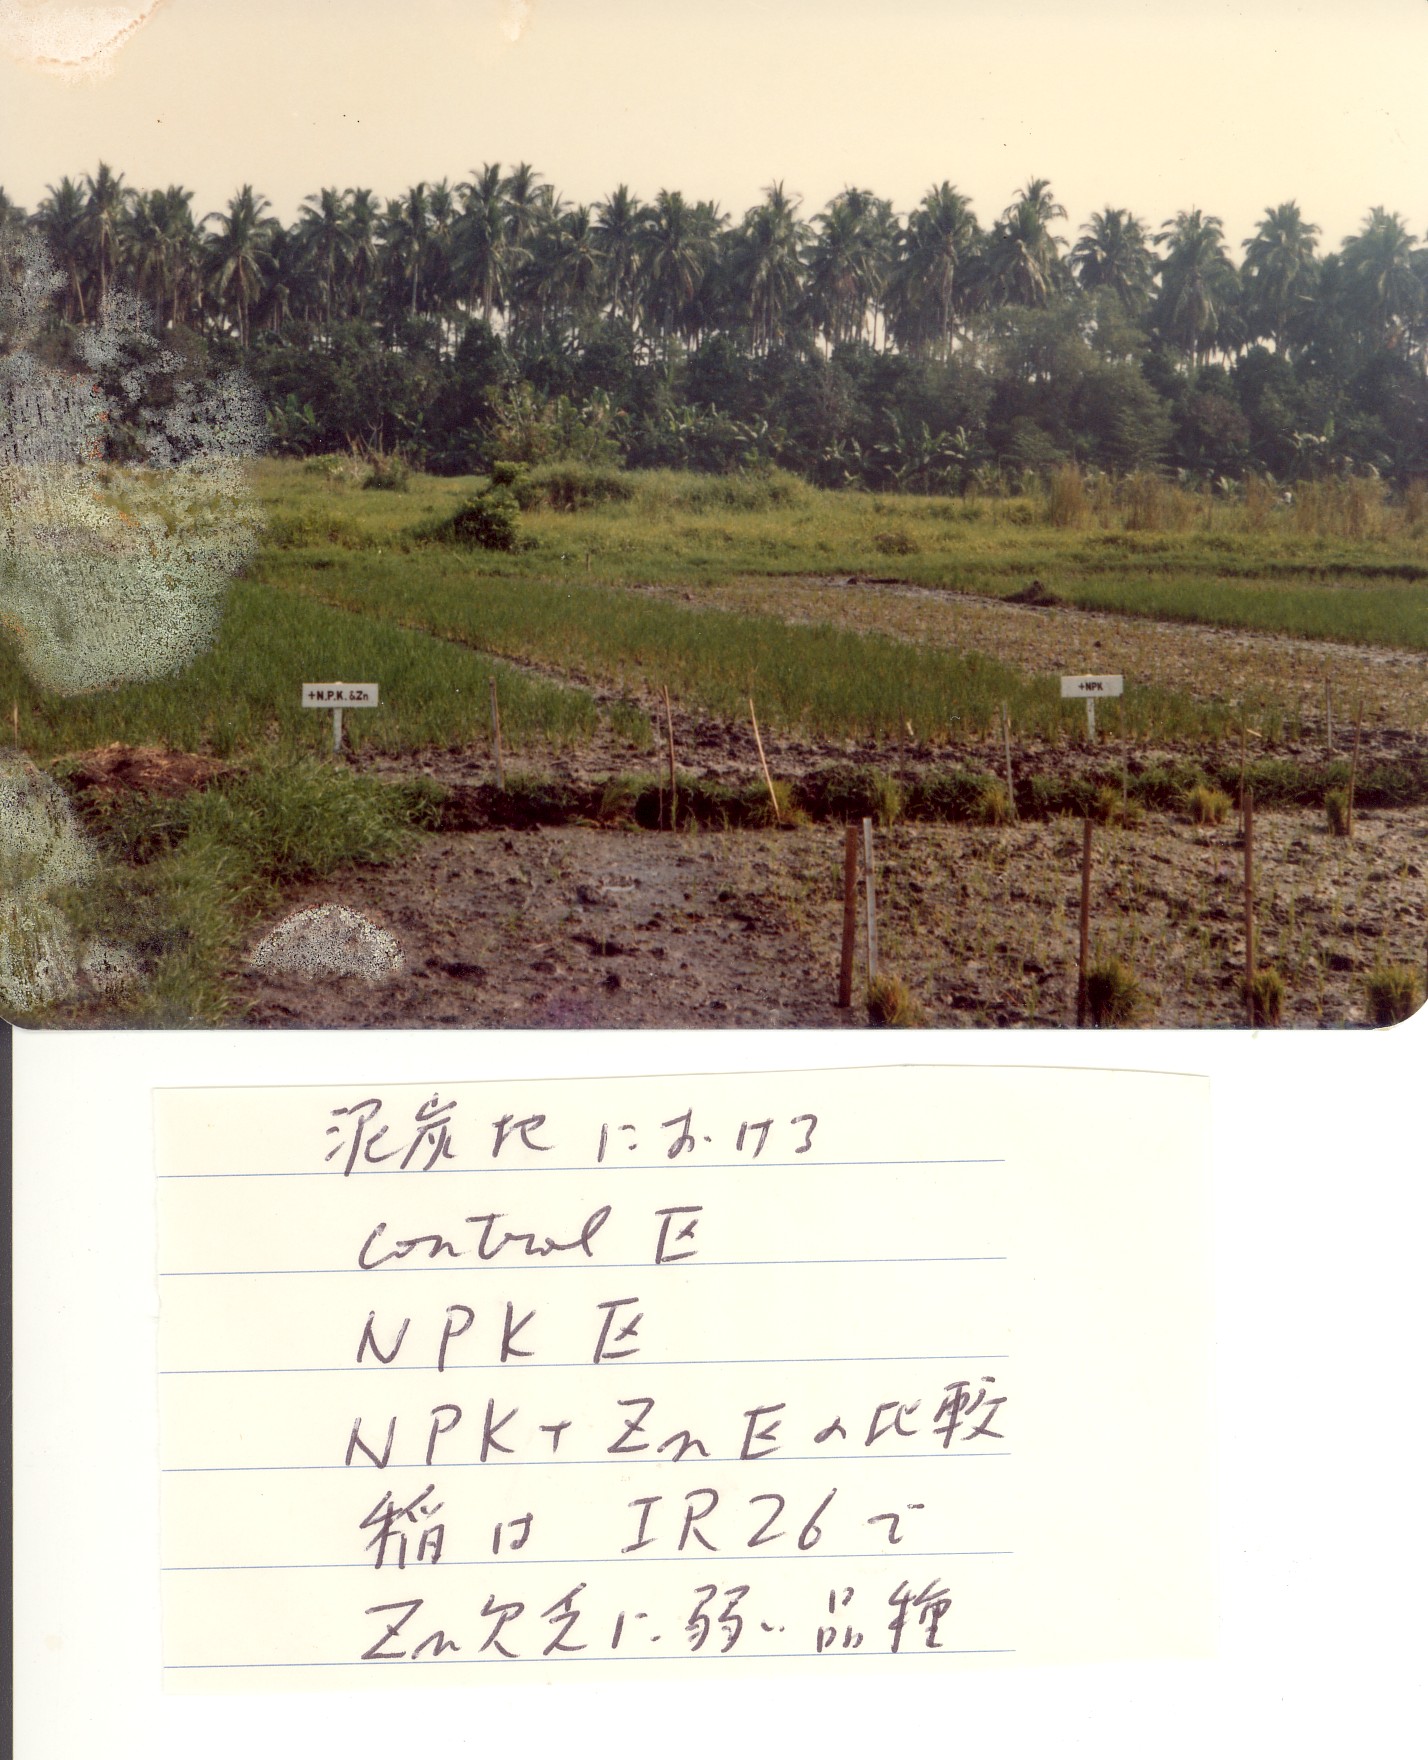 +N.P.K.&Zn
+NPK
泥炭地における
control 区
NPK 区
NPK+Zn区の比較
稲は IR26で
Zn欠乏に弱い品種